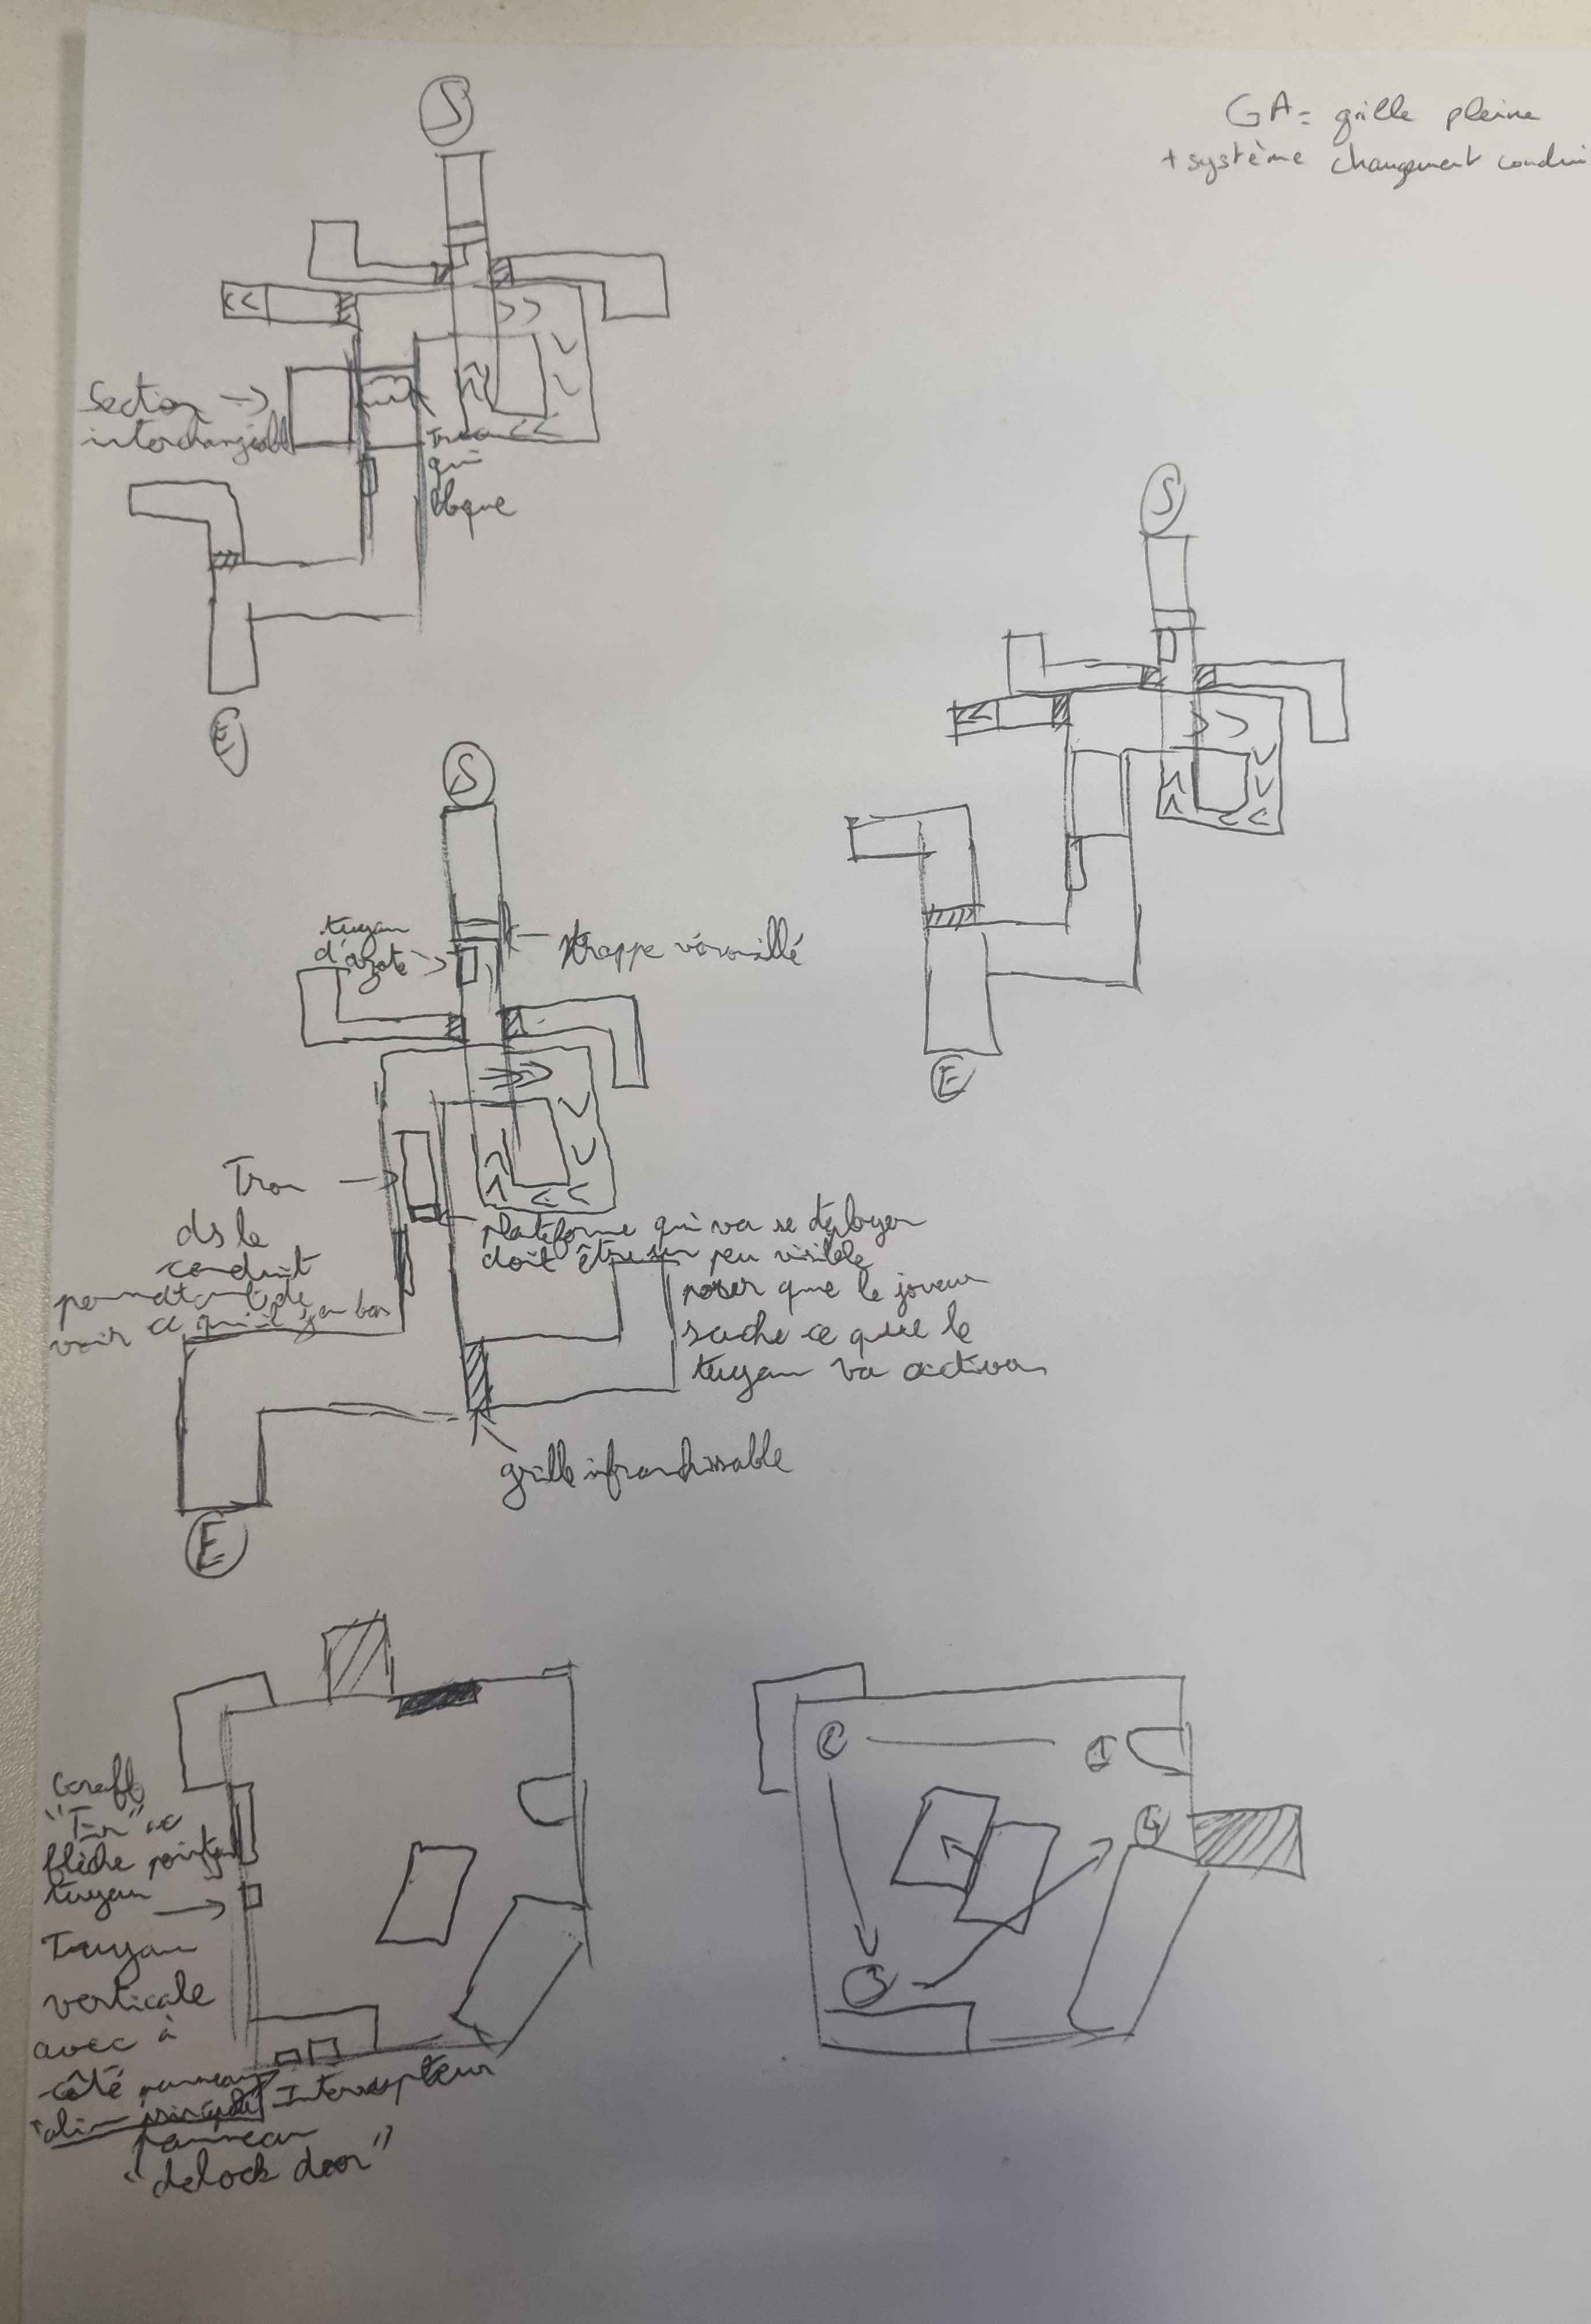 GA = grille pleine
+ système changement condui
S
<<
>>
Section →
interchangeable
<<
qui
bloque
E
S
<<
>>
<<
E
S
tuyau
d'azote
trappe vérouillé
>>
Trou
ds le
conduit
permettant de
voir ce qu'il y a en bas
<<
plateforme qui va se déployer
doit être un peu visible
poser que le joueur
sache ce que le
tuyau va activer
grille infranchissable
E
Graff
flèche pointant
tuyau
Tuyau
verticale
avec à
côté panneau
"alim principale"
Interrupteur
panneau
"delock door"
2
1
4
3